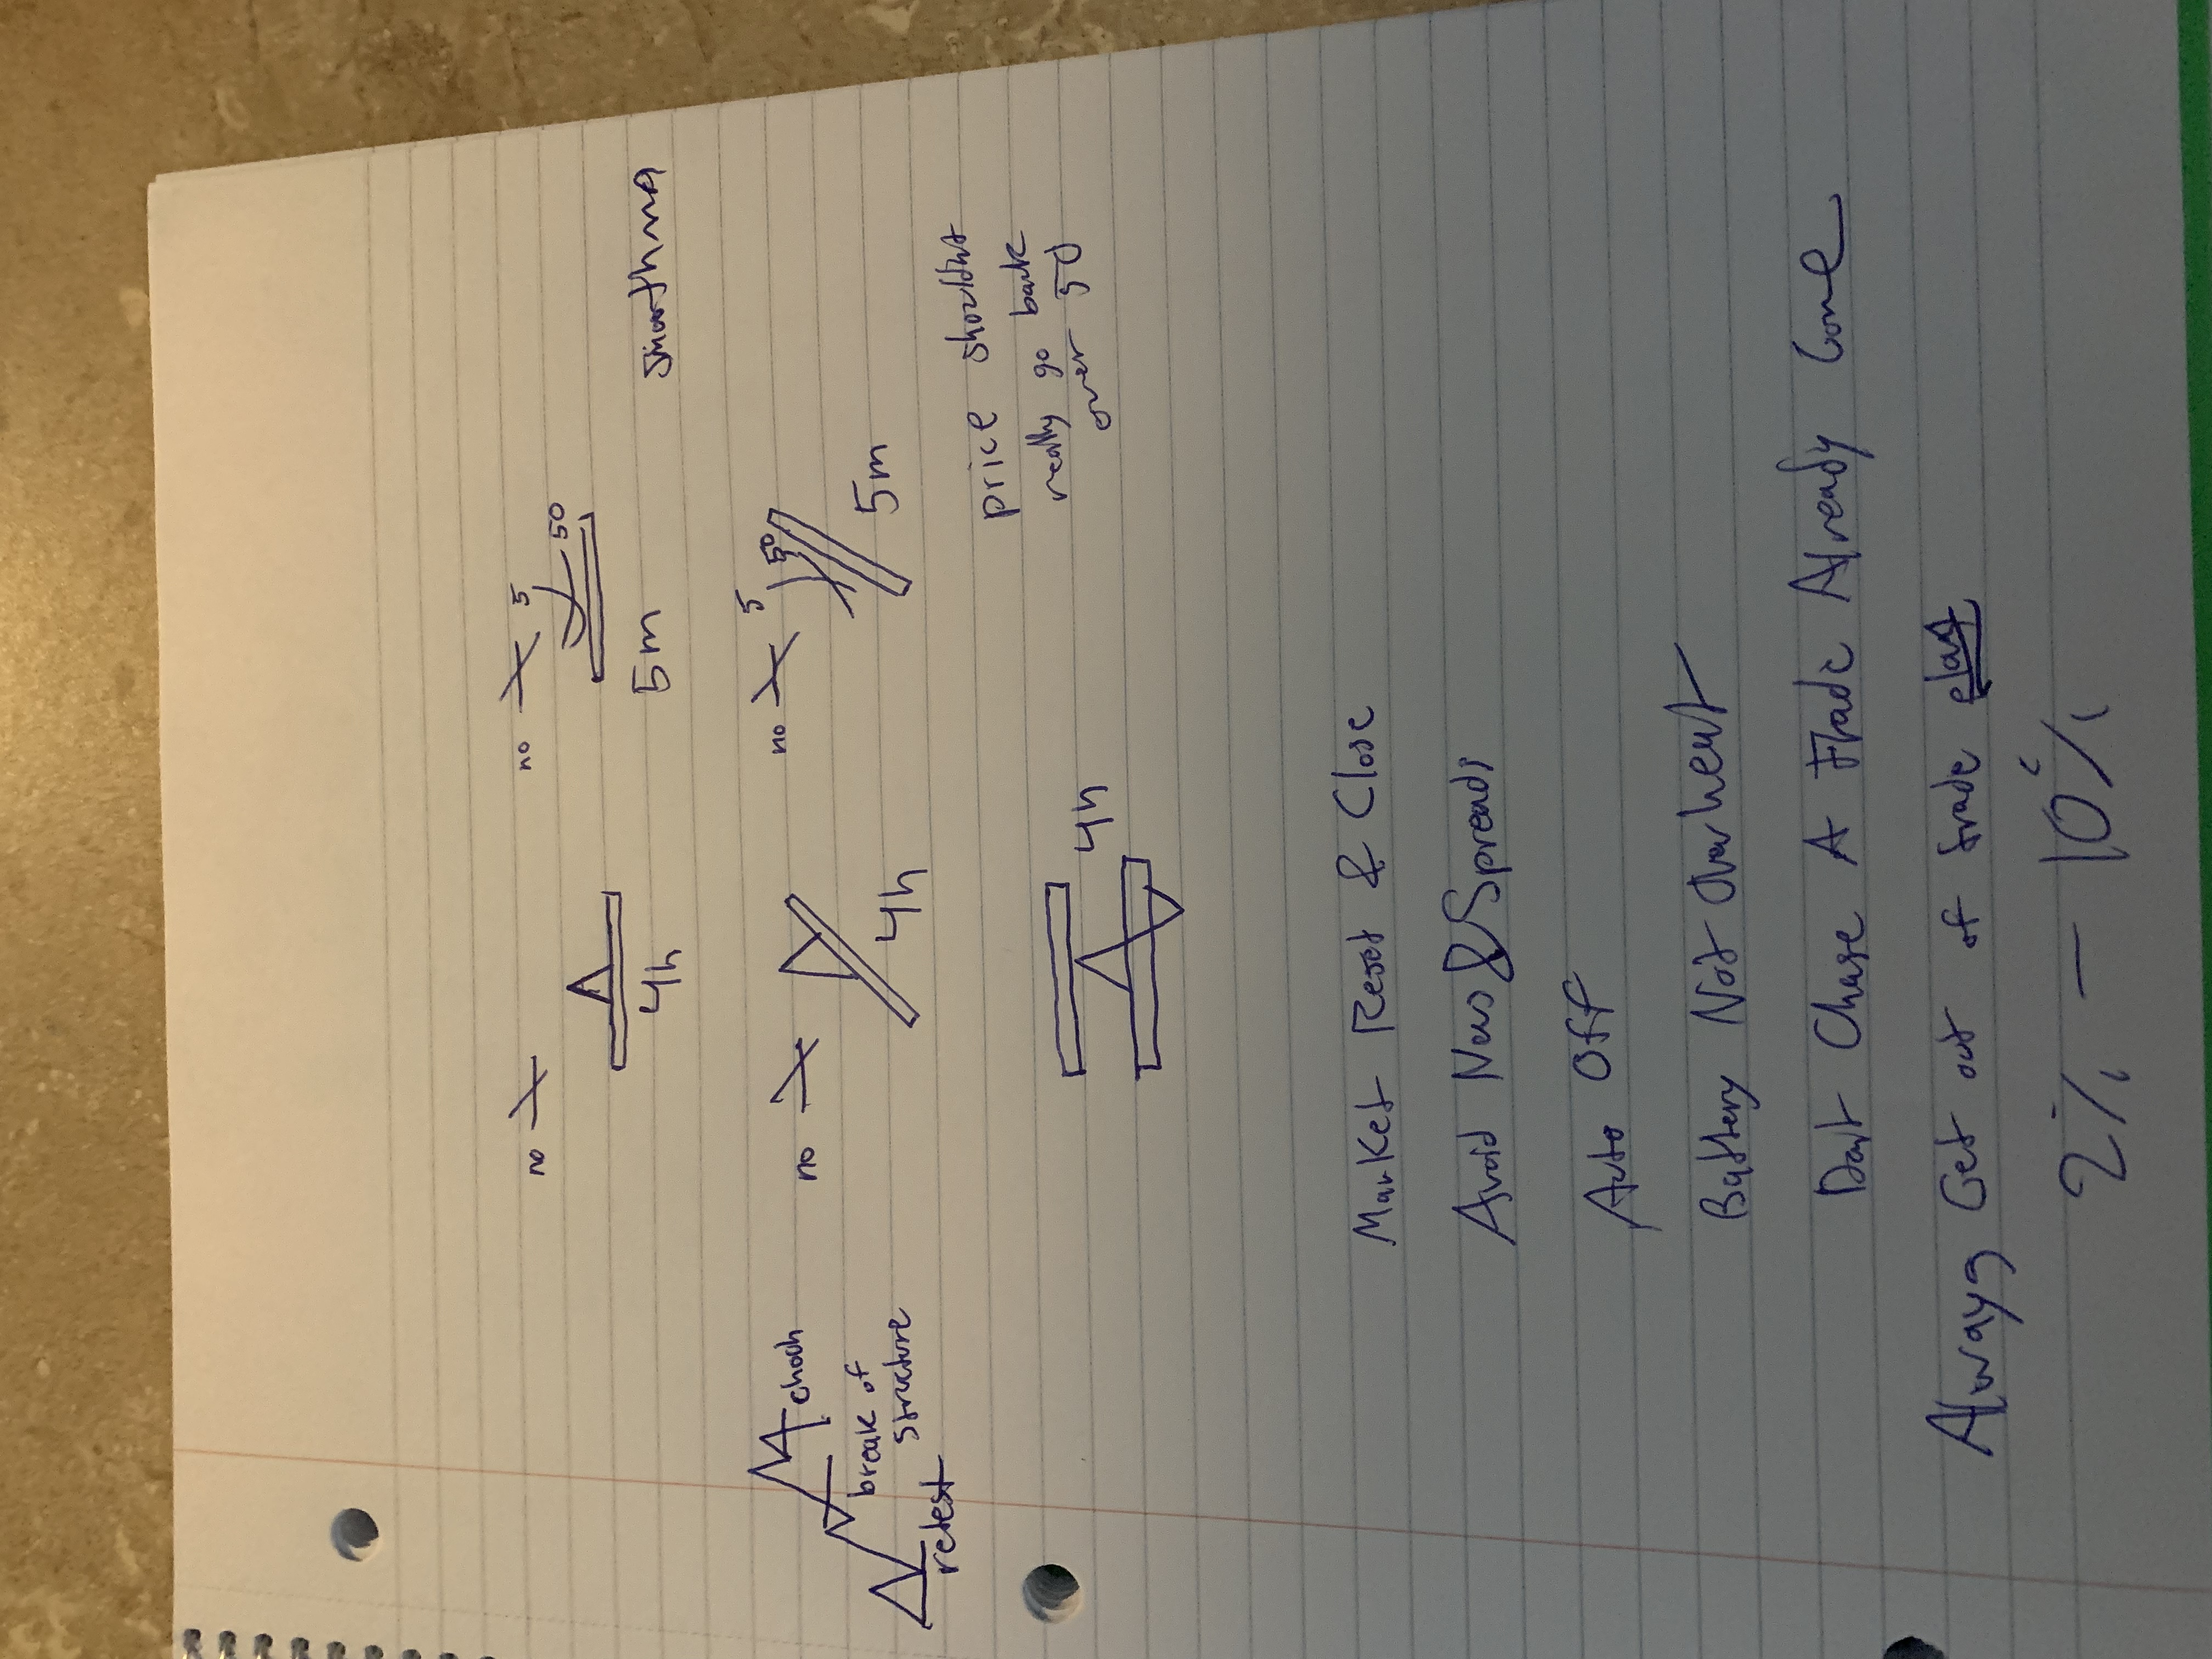 no
no 5
50
4h
5m
smoothma
choch
break of
structure
retest
no
no 5
50
4h
5m
4h
price shouldnt
really go back
over 50
Market Reset & Close
Avoid News & Spreads
Auto Off
Battery Not Overheat
Dont Chase A Trade Already Gone
Always Get out of trade
2% - 10%